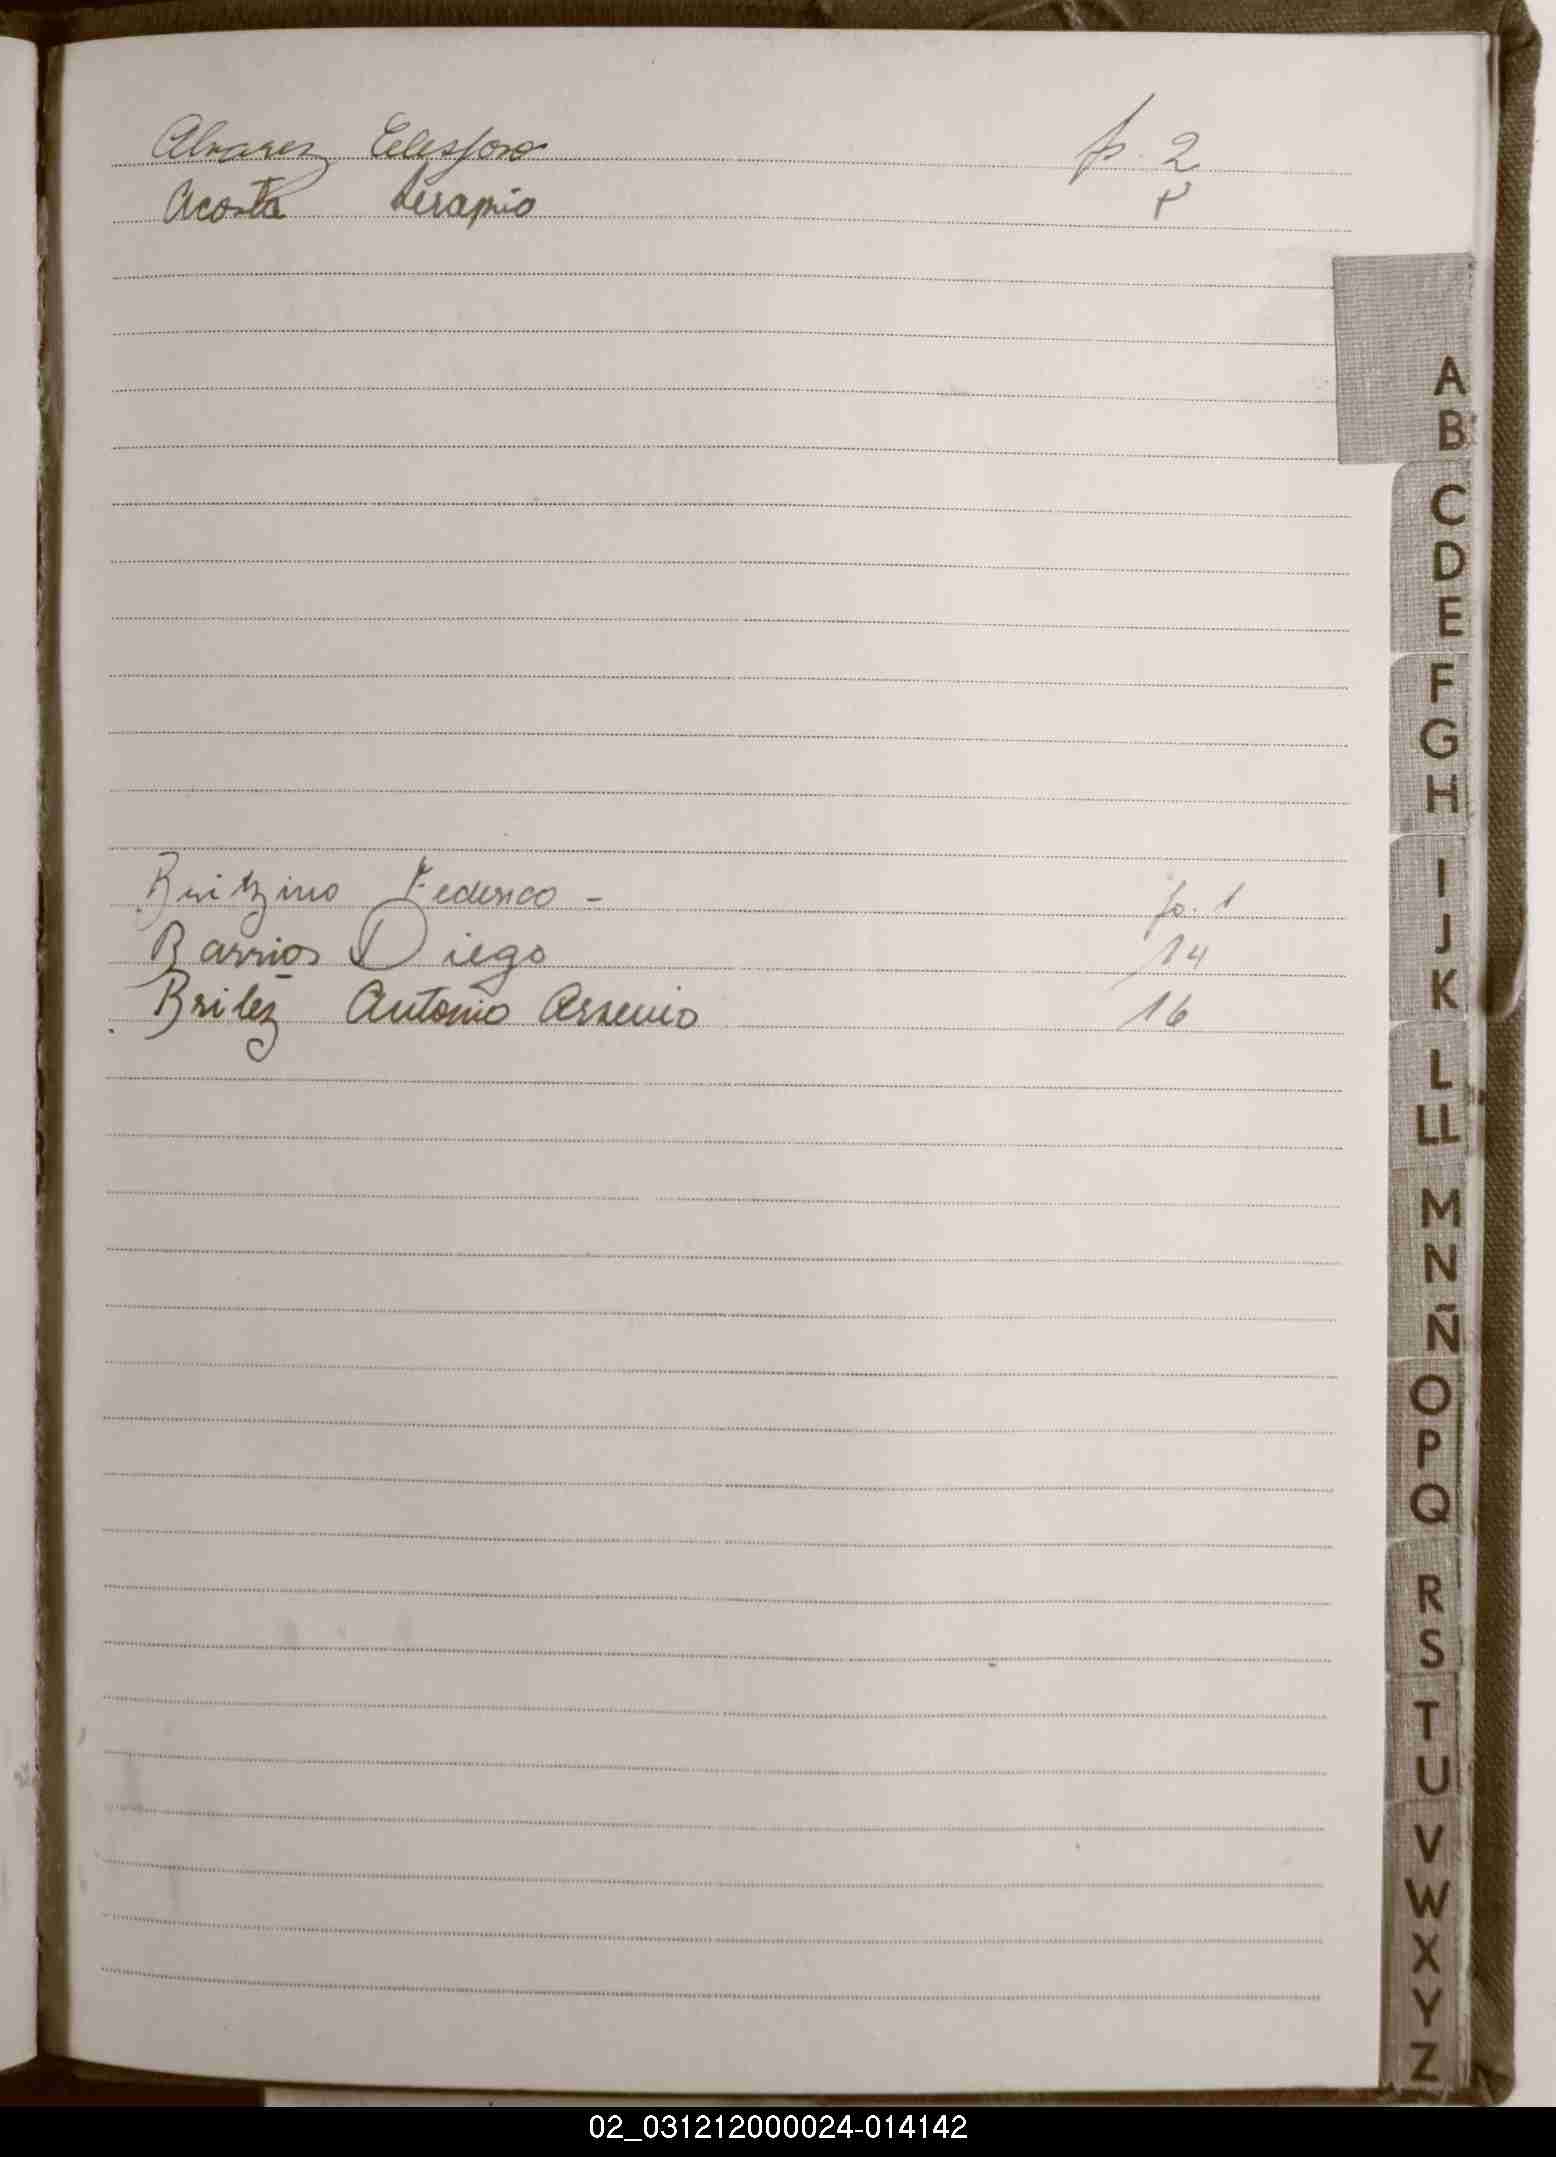 Alvarez Telesforo p. 2
Acosta Serapio
Federico - fo. 1
Barrios Diego 14
Brilez Antonio Arsenio 16
A
B
C
D
E
F
G
H
I
J
K
L
LL
M
N
Ñ
O
P
Q
R
S
T
U
V
W
X
Y
Z
02_031212000024-014142